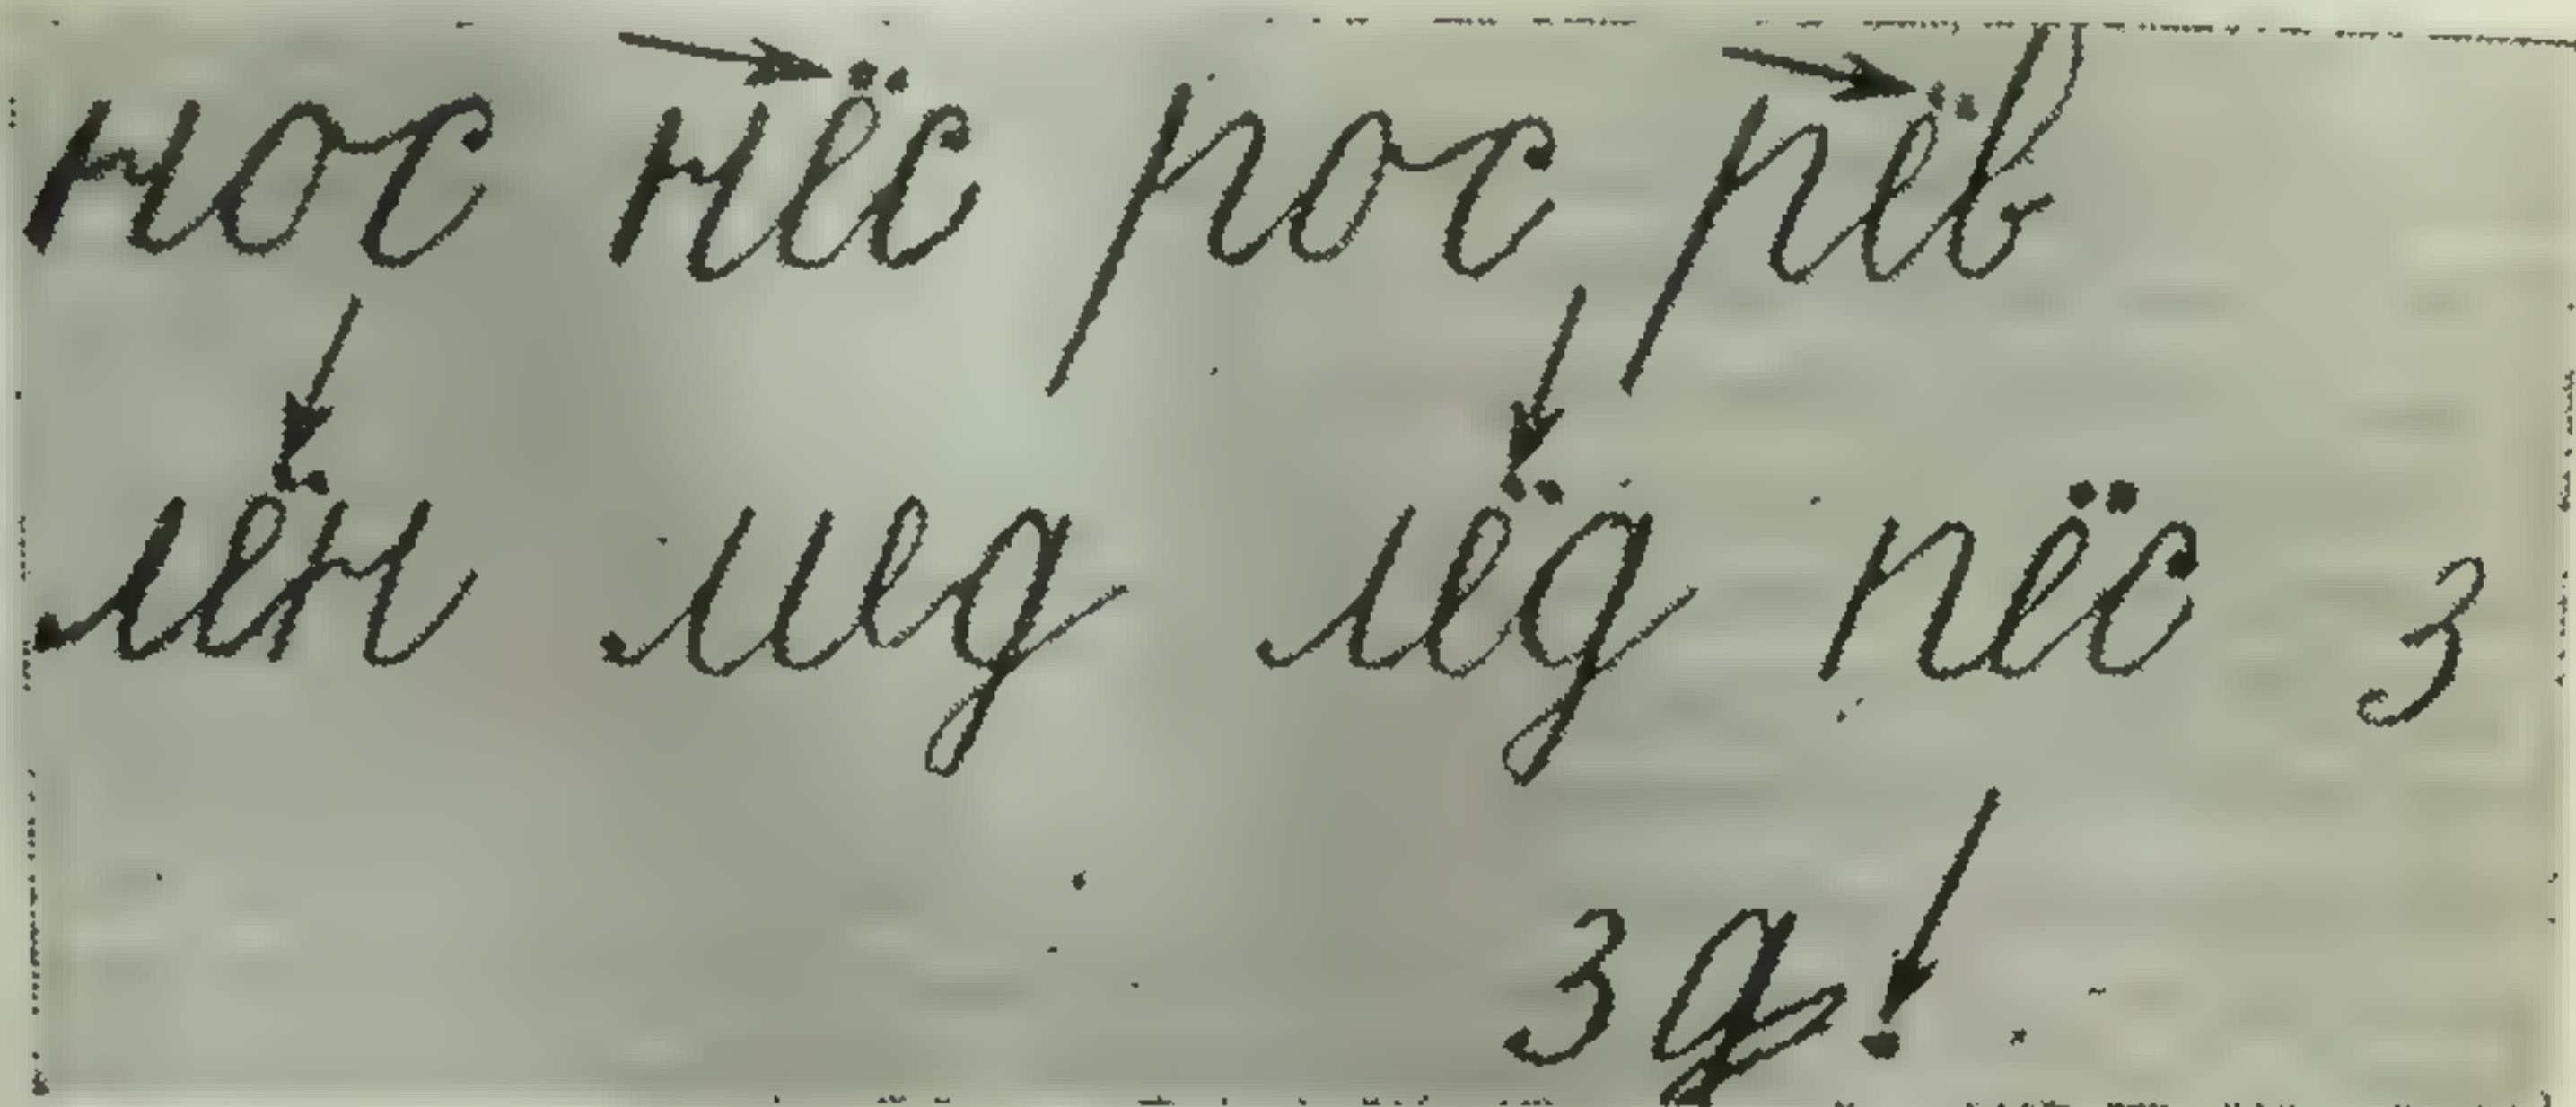 нос нёс рос рёв
лён мед лёд пёс 3
3 д.